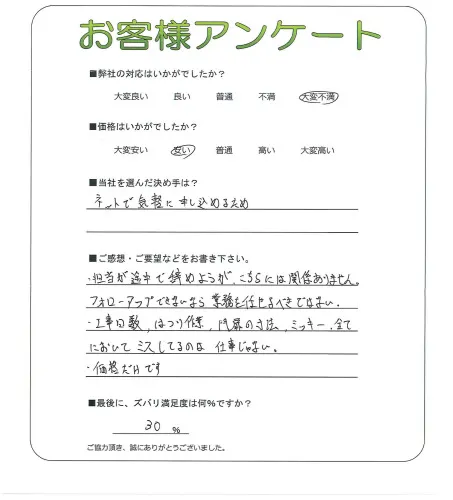 お客様アンケート
■弊社の対応はいかがでしたか？
大変良い 良い 普通 不満 大変不満
■価格はいかがでしたか？
大変安い 安い 普通 高い 大変高い
■当社を選んだ決め手は？
ネットで気軽に申し込めるため
■ご感想・ご要望などをお書き下さい。
・担当が途中で辞めようが、こちらには関係ありません。
フォローアップできないなら業務を任せるべきではない。
・工事日数、はつり作業、門扉の寸法、ミッキー、全て
においてミスしてるのは仕事じゃない。
・価格だけです
■最後に、ズバリ満足度は何％ですか？
30 %
ご協力頂き、誠にありがとうございました。